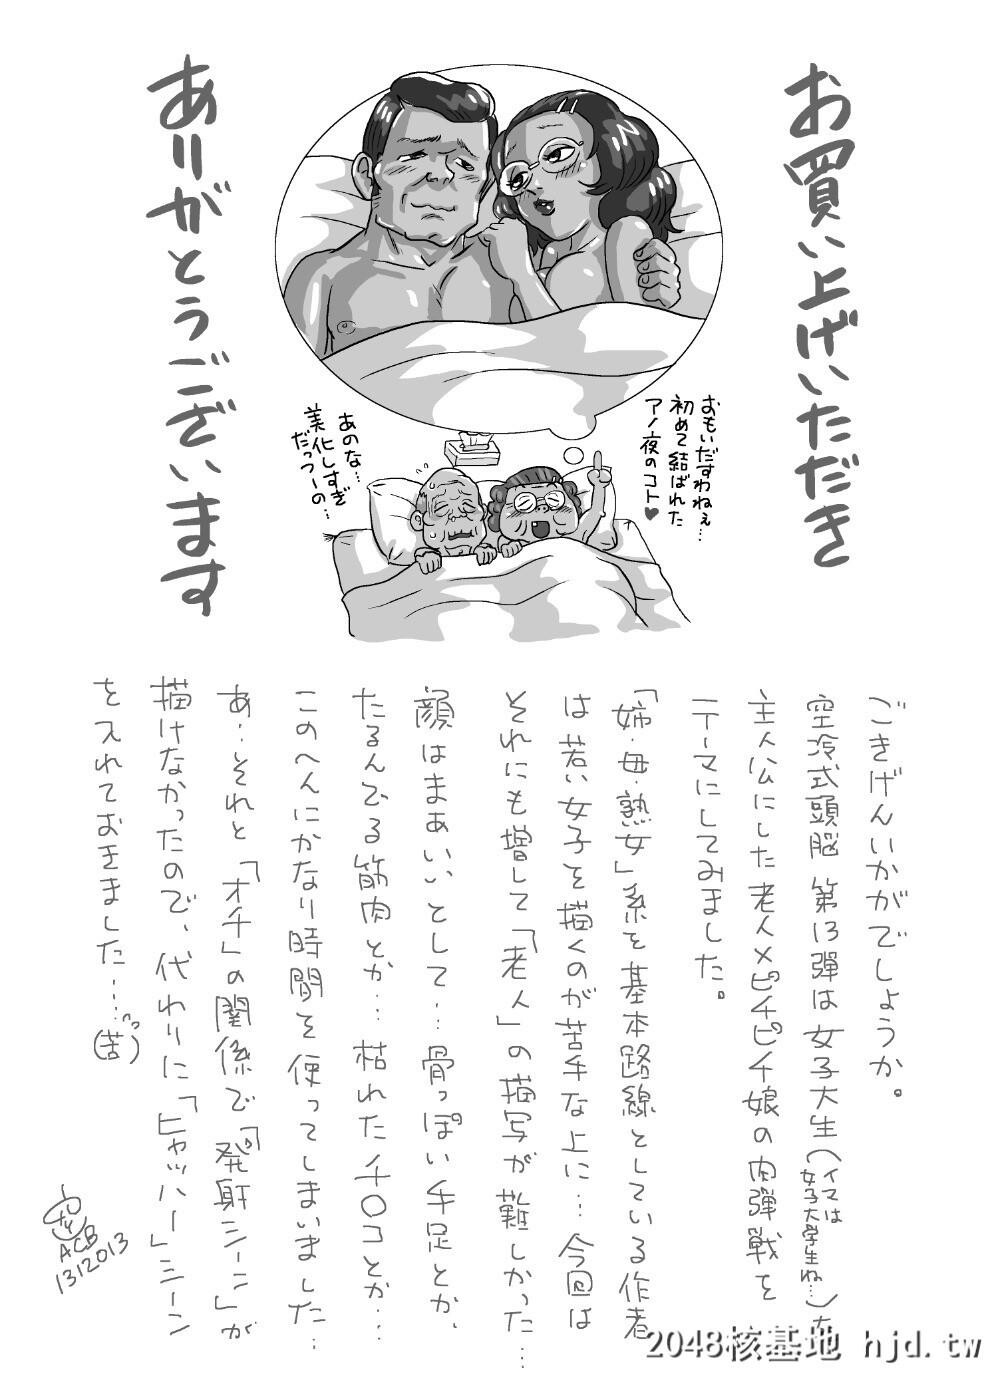 お買い上げいただき
ありがとうございます
おもいだすわねぇ…
初めて結ばれた
アノ夜のコト♥
あのな…
美化しすぎ
だっつーの…
ごきげんいかがでしょうか。
空冷式頭脳 第13弾は女子大生(イマは女子大学生ね…)を
主人公にした老人×ピチピチ娘の肉弾戦を
テーマにしてみました。
「姉・母・熟女」系を基本路線としている作者
は若い女子を描くのが苦手な上に…今回は
それにも増して「老人」の描写が難しかった…
顔はまぁいいとして…骨っぽい手足とか、
たるんでる筋肉とか…枯れたチ〇コとか…
このへんにかなり時間を使ってしまいました…
あ…それと「オチ」の関係で「発射シーン」が
描けなかったので、代わりに「ヒャッハー」シーン
を入れておきました……(苦)
ACB
1312013
2048核基地 hjd.tw